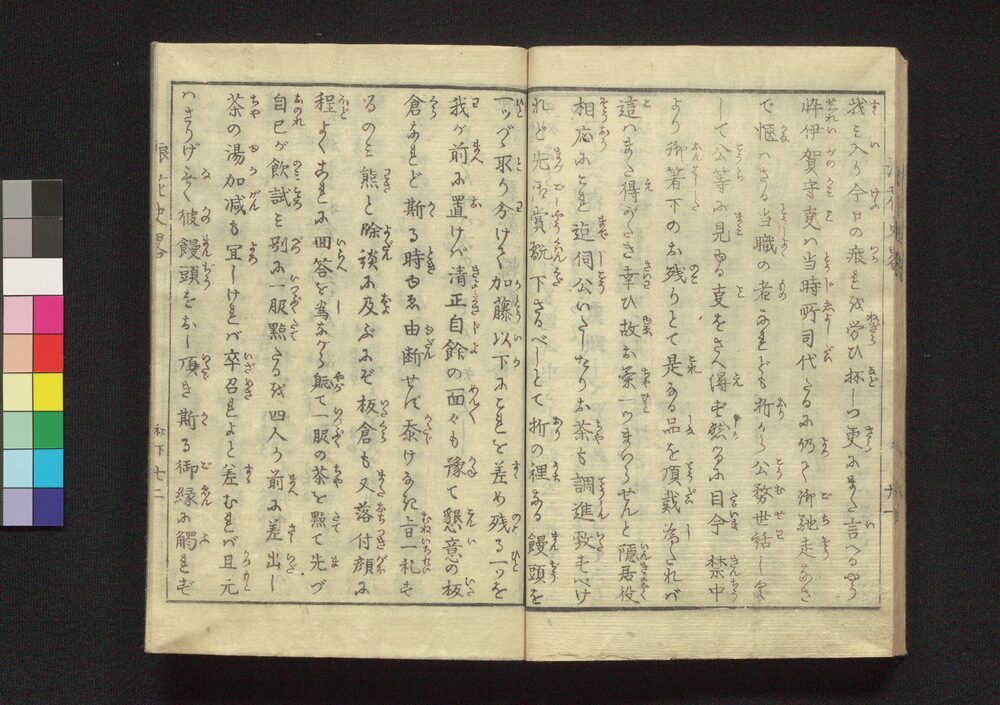 我を入り今日の疲れを労ひ拝しつ更にまた言へるやう
忰伊賀守事ハ当時所司代たるに仍て御馳走なさ
で愜ハざる当職の者なれども折から公務世話しく
して公等に見ゆる事をさへ得ず然るに目今禁中
より御箸下のお残りとて是ある品を頂戴為たれバ
這ハまた得がたき幸ひ故お茶一つまゐらせんと隠居役
相応にこれ迄伺公いたしたりお茶も調進致すべけ
れど先御賞翫下さるべしとて折の裡なる饅頭を
一ツづゝ取り分けて加藤以下にこれを差め残る一ツを
我が前に置けバ清正自餘の面々も豫て懇意の板
倉なれど斯る時ゆゑ由断せず忝けなき旨一礼す
るのミ熊と除談に及ぶにぞ板倉も又落付顔に
程よくこれに回答を為ながら軈て一服の茶を點て先づ
自己が飲試ミ別に一服點たるを四人が前に差出し
茶の湯加減も冝しけれバ卒召れよと差むれバ且元
ハさりげなく彼饅頭をおし頂き斯る御縁に觸れずバ